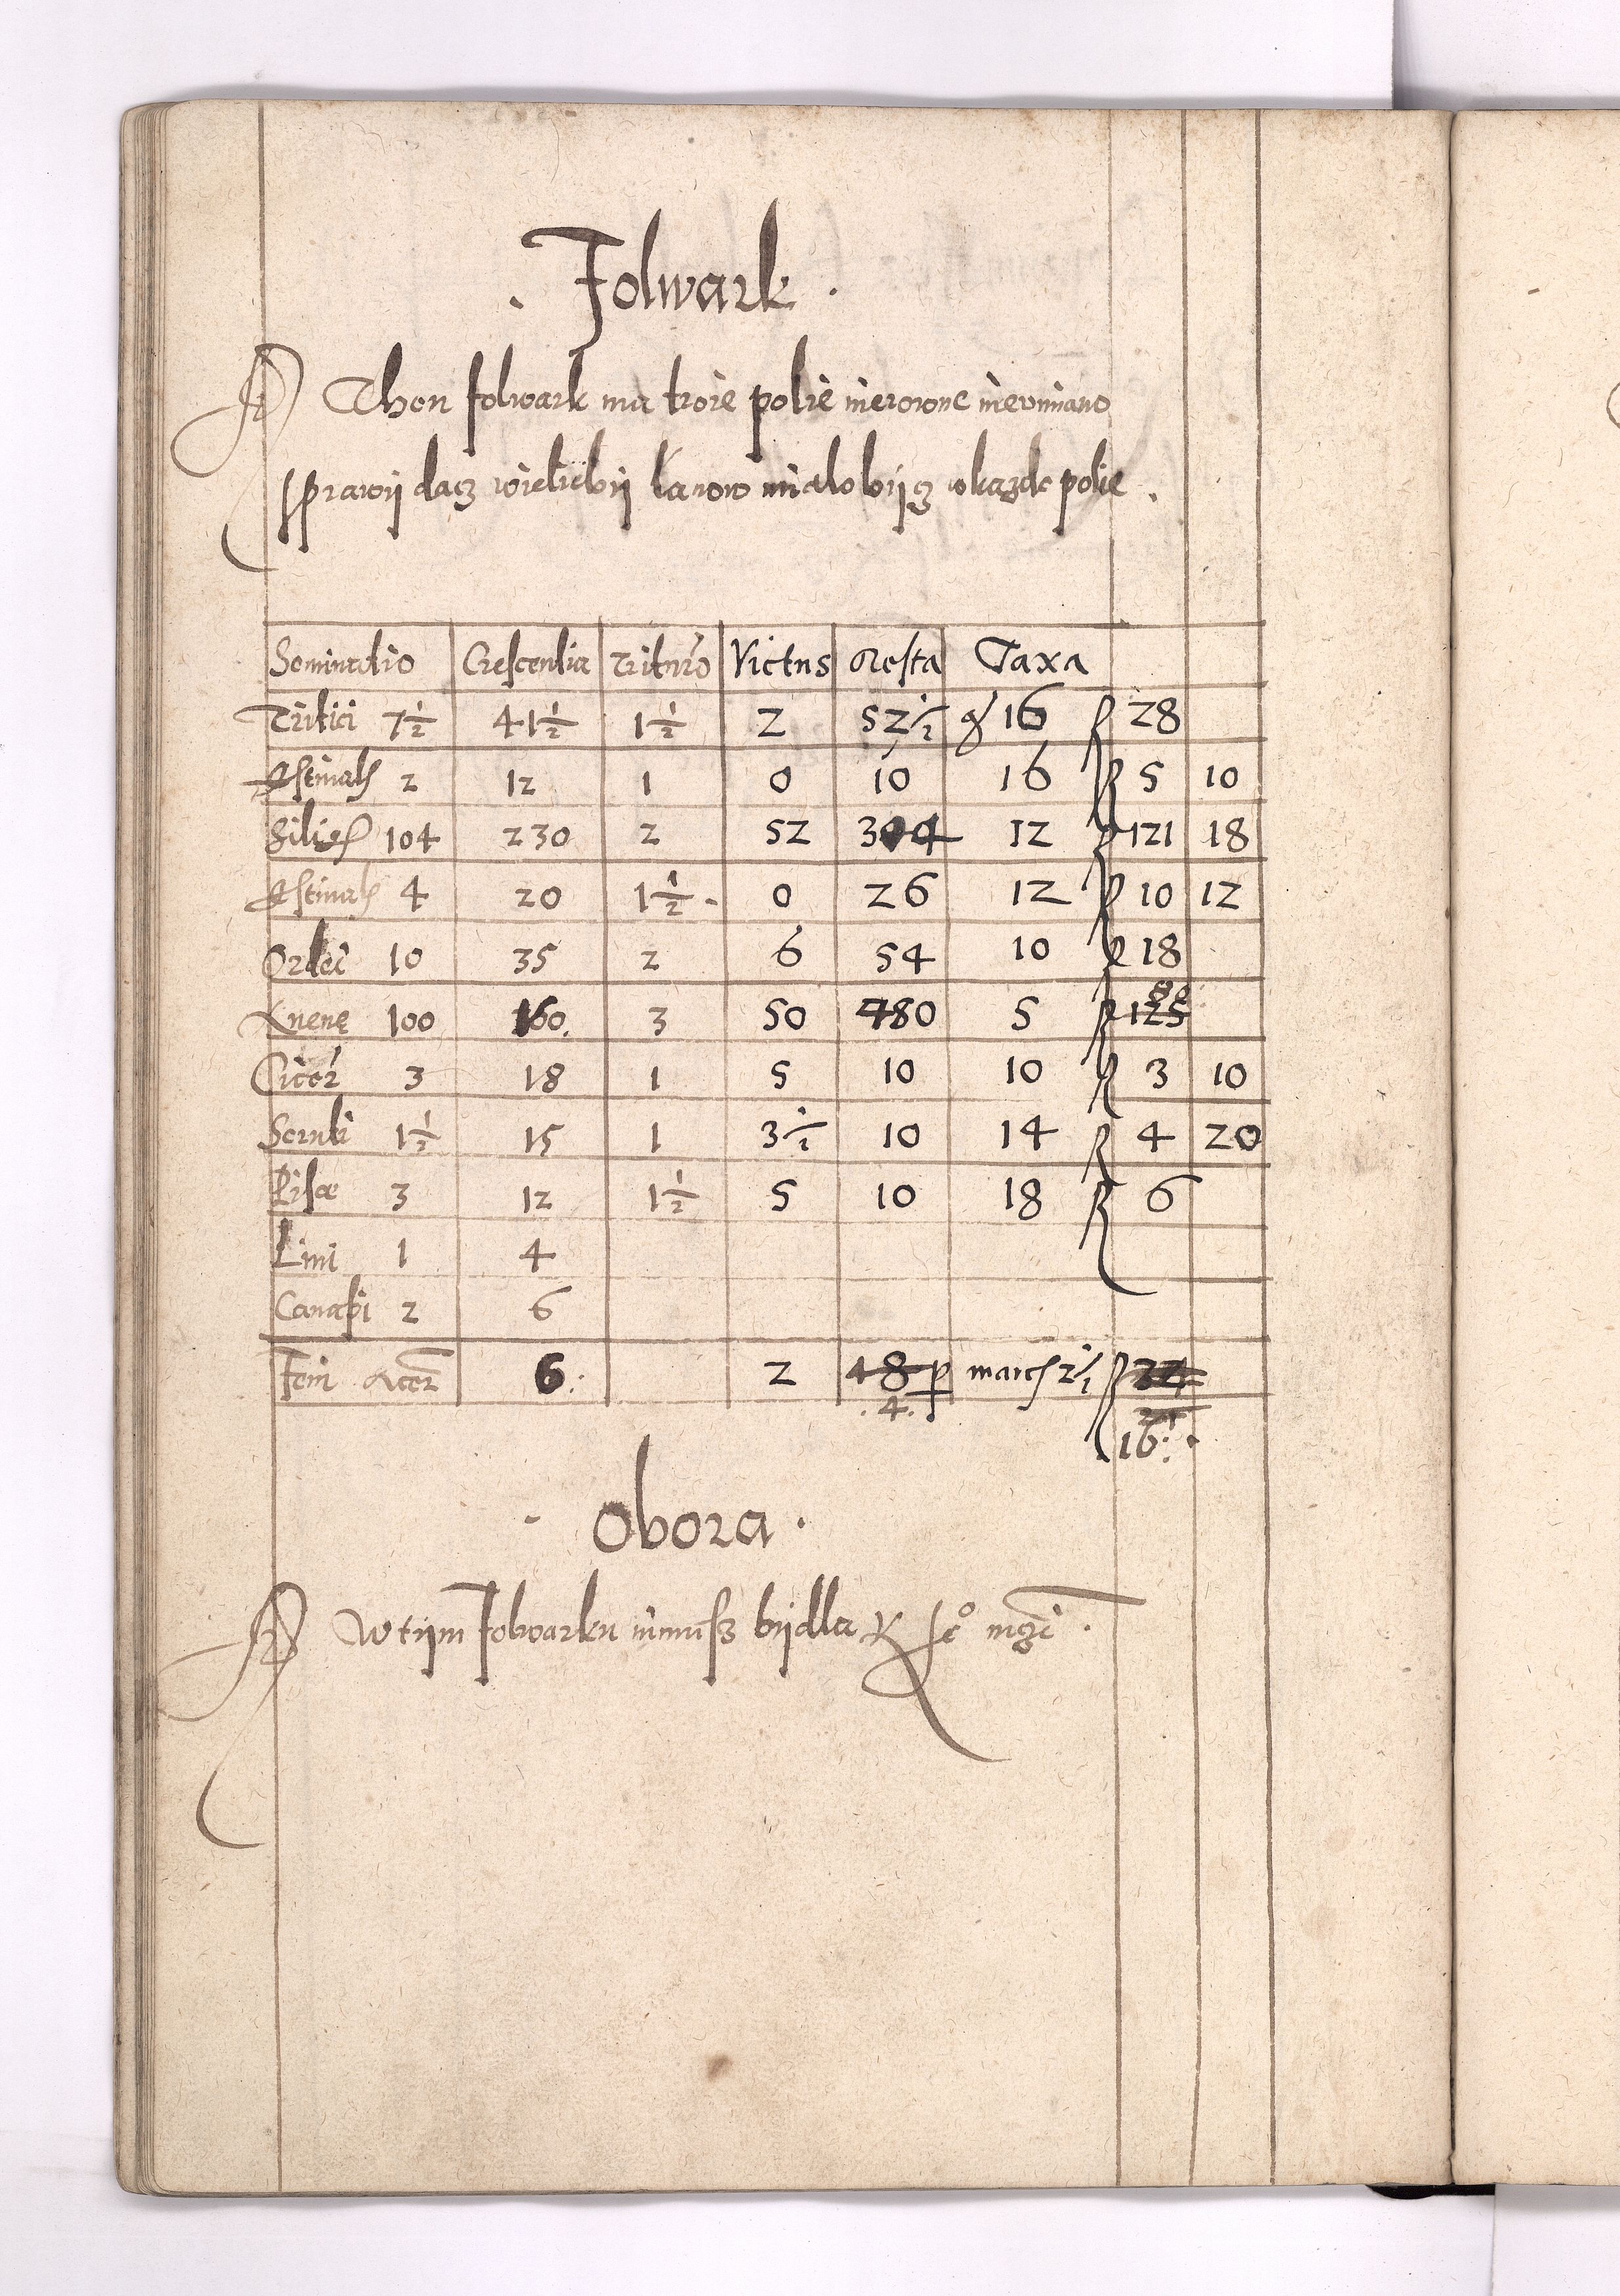 . Folwark .
Thon folwark ma troie polie nierowne nieumiano
sprawij dacz wielielbij lanow mialo bijcz wkazde polie .
Seminatio Crescentia Tritura Victus Resta Taxa
Tritici 7½ 41½ 1½ 2 52½ gr 16 28
Estivalis 2 12 1 0 10 16 5 10
Siliginis 104 230 2 52 304 12 121 18
Estivalis 4 20 1½ 0 26 12 10 12
Ordei 10 35 2 6 54 10 18
Avenę 100 160. 3 50 480 5 125 80
Cicer 3 18 1 5 10 10 3 10
1½ 15 1 3½ 10 14 4 20
Pisæ 3 12 1½ 5 10 18 6
Lini 1 4
Canapi 2 6
Feni Acer 6. 2 48 p march 2½
.4. 16.
. Obora .
W tijm Folwarku niemasz bijdla